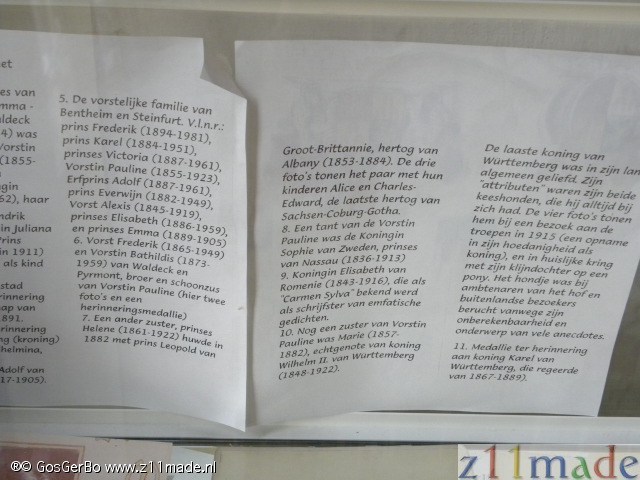 et
es van
mma -
ldeck
4) was
orstin
(1855-
gin
62), haar
ndrik
in Juliana
Prins
in 1911)
als kind
stad
rinnering
ap van
891.
rinnering
ng (kroning)
helmina,
Adolf van
17-1905).
5. De vorstelijke familie van
Bentheim en Steinfurt. V.l.n.r.:
prins Frederik (1894-1981),
prins Karel (1884-1951),
prinses Victoria (1887-1961),
Vorstin Pauline (1855-1923),
Erfprins Adolf (1887-1961),
prins Everwijn (1882-1949),
Vorst Alexis (1845-1919),
prinses Elisabeth (1886-1959),
en prinses Emma (1889-1905)
6. Vorst Frederik (1865-1949)
en Vorstin Bathildis (1873-
1959) van Waldeck en
Pyrmont, broer en schoonzus
van Vorstin Pauline (hier twee
foto's en een
herinneringsmedallie)
7. Een ander zuster, prinses
Helene (1861-1922) huwde in
1882 met prins Leopold van
Groot-Brittannie, hertog van
Albany (1853-1884). De drie
foto's tonen het paar met hun
kinderen Alice en Charles-
Edward, de laatste hertog van
Sachsen-Coburg-Gotha.
8. Een tant van de Vorstin
Pauline was de Koningin
Sophie van Zweden, prinses
van Nassau (1836-1913)
9. Koningin Elisabeth van
Romenie (1843-1916), die als
"Carmen Sylva" bekend werd
als schrijfster van emfatische
gedichten.
10. Nog een zuster van Vorstin
Pauline was Marie (1857-
1882), echtgenote van koning
Wilhelm II. van Wurttemberg
(1848-1922).
De laaste koning van
Württemberg was in zijn lan
algemeen geliefd. Zijn
"attributen" waren zijn beide
keeshonden, die hij alltijd bij
zich had. De vier foto's tonen
hem bij een bezoek aan de
troepen in 1915 (een opname
in zijn hoedanigheid als
koning), en in huislijke kring
met zijn klijndochter op een
pony. Het hondje was bij
ambtenaren van het hof en
buitenlandse bezoekers
berucht vanwege zijn
onberekenbaarheid en
onderwerp van vele anecdotes.
11. Medallie ter herinnering
aan koning Karel van
Württemberg, die regeerde
van 1867-1889).
®© GosGerBo www.z11made.nl
z11made